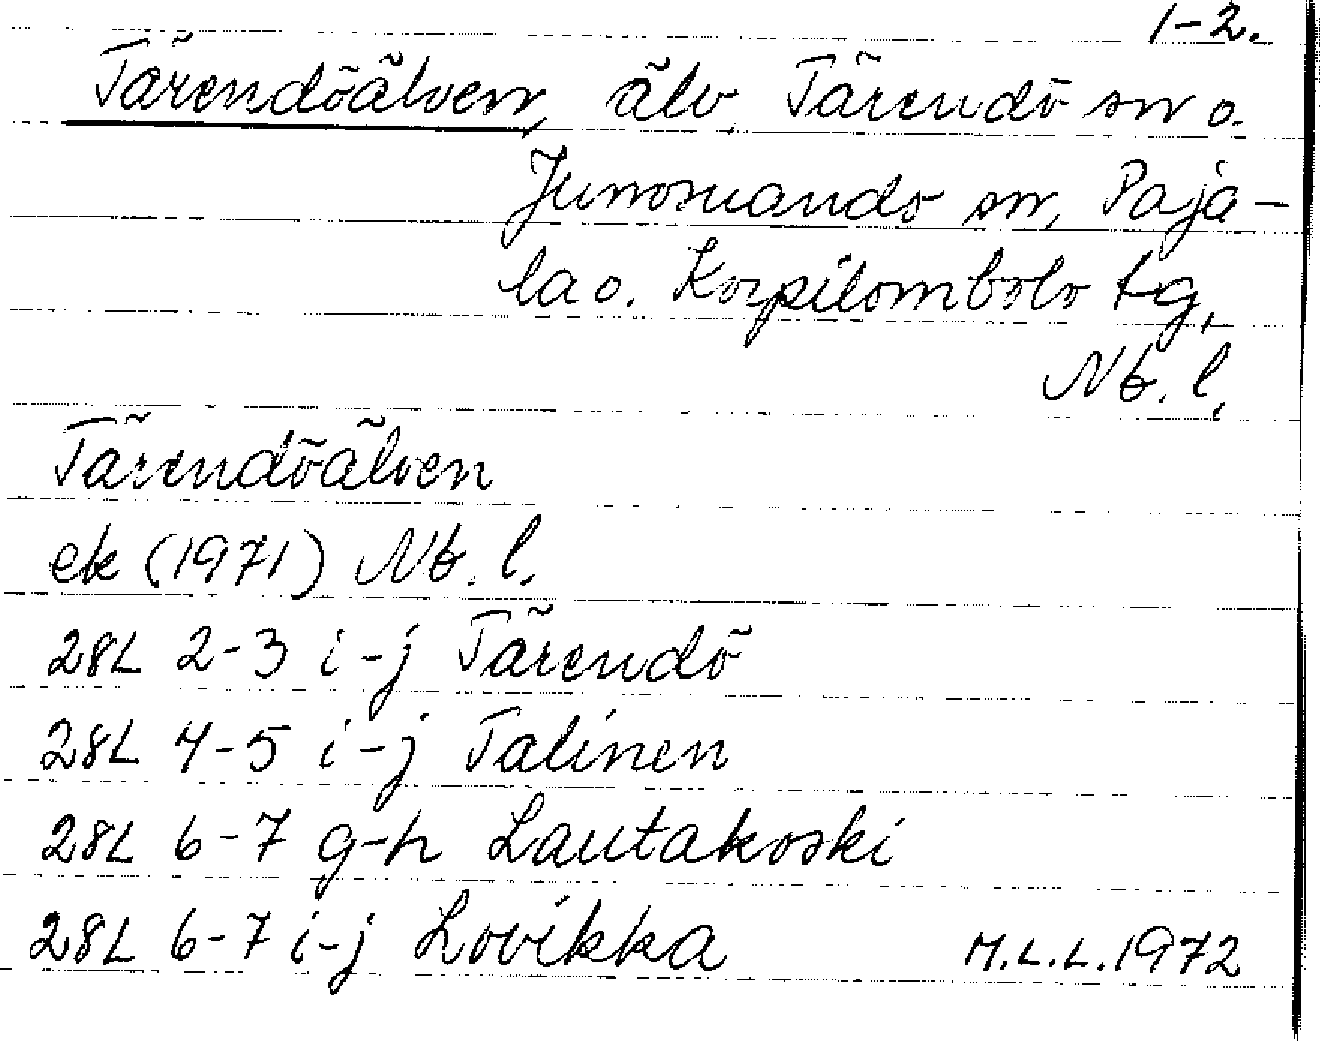 1-2.
Tärendöälven, älv, Tärendö sn o.
Junosuando sn, Paja-
la o. Korpilombolo tg,
Nb. l.
Tärendöälven
ek (1971) Nb. l.
28L 2-3 i-j Tärendö
28L 4-5 i-j Talinen
28L 6-7 g-h Lautakoski
28L 6-7 i-j Lovikka M.L.L. 1972